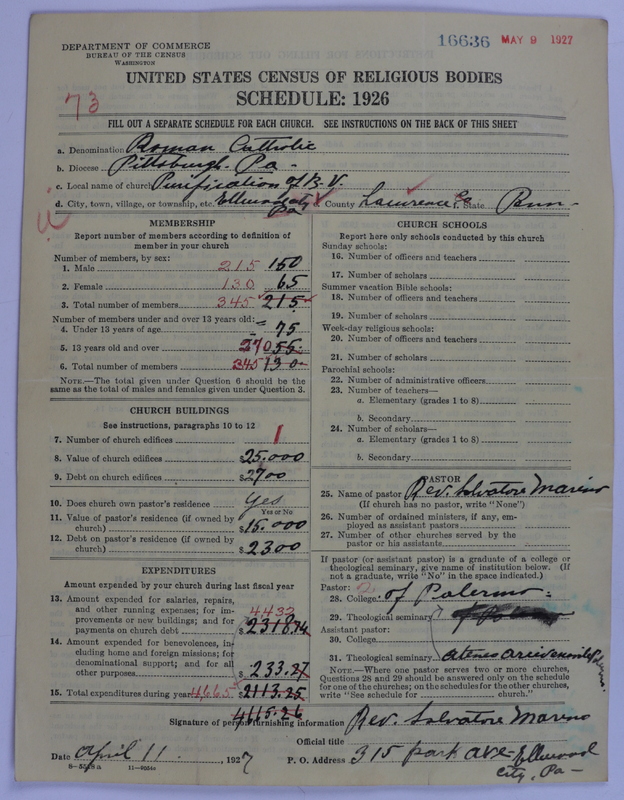 16636 MAY 9 1927
DEPARTMENT OF COMMERCE
BUREAU OF THE CENSUS
WASHINGTON
UNITED STATES CENSUS OF RELIGIOUS BODIES
SCHEDULE: 1926
73
FILL OUT A SEPARATE SCHEDULE FOR EACH CHURCH. SEE INSTRUCTIONS ON THE BACK OF THIS SHEET
a. Denomination Roman Catholic
b. Diocese Pittsburgh. Pa -
c. Local name of church Purification of B. V.
d. City, town, village, or township, etc. Ellwood City Pa County Lawrence Co f. State Penn-
MEMBERSHIP
Report number of members according to definition of
member in your church
Number of members, by sex:
1. Male 215 150
2. Female 130 65
3. Total number of members 345 215
Number of members under and over 13 years old:
4. Under 13 years of age 75
5. 13 years old and over 270 55
6. Total number of members 345 130
NOTE.—The total given under Question 6 should be the
same as the total of males and females given under Question 3.
CHURCH BUILDINGS
See instructions, paragraphs 10 to 12
7. Number of church edifices 1
8. Value of church edifices $25.000
9. Debt on church edifices $2700
10. Does church own pastor's residence yes
Yes or No
11. Value of pastor's residence (if owned by
church) $15.000
12. Debt on pastor's residence (if owned by
church) $2300
EXPENDITURES
Amount expended by your church during last fiscal year
13. Amount expended for salaries, repairs,
and other running expenses; for im-
provements or new buildings; and for
payments on church debt 4432 $2318.74
14. Amount expended for benevolences, in-
cluding home and foreign missions; for
denominational support; and for all
other purposes $233.27
15. Total expenditures during year 4665 $2113.25
4115.26
CHURCH SCHOOLS
Report here only schools conducted by this church
Sunday schools:
16. Number of officers and teachers
17. Number of scholars
Summer vacation Bible schools:
18. Number of officers and teachers
19. Number of scholars
Week-day religious schools:
20. Number of officers and teachers
21. Number of scholars
Parochial schools:
22. Number of administrative officers
23. Number of teachers—
a. Elementary (grades 1 to 8)
b. Secondary
24. Number of scholars—
a. Elementary (grades 1 to 8)
b. Secondary
PASTOR
25. Name of pastor Rev. Salvatore Marino
(If church has no pastor, write "None")
26. Number of ordained ministers, if any, em-
ployed as assistant pastors
27. Number of other churches served by the
pastor or his assistants
If pastor (or assistant pastor) is a graduate of a college or
theological seminary, give name of institution below. (If
not a graduate, write "No" in the space indicated.)
Pastor:
28. College of Palermo
29. Theological seminary
Assistant pastor:
30. College
31. Theological seminary
NOTE.—Where one pastor serves two or more churches,
Questions 28 and 29 should be answered only on the schedule
for one of the churches; on the schedules for the other churches,
write "See schedule for church."
Signature of person furnishing information Rev. Salvatore Marino
Official title
Date April 11. 1927 P. O. Address 315 park ave- Ellwood
City, Pa -
8-5518 a